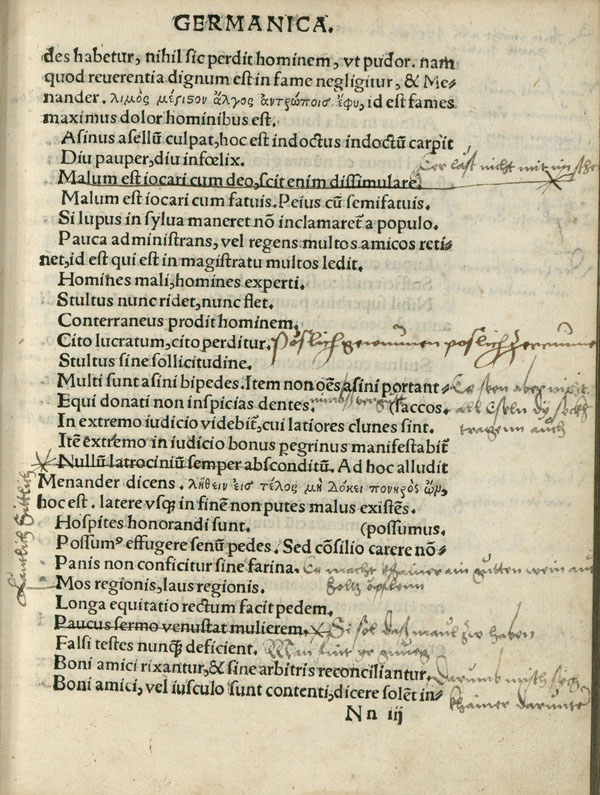 GERMANICA.
des habetur, nihil sic perdit hominem, vt pudor. nam
quod reuerentia dignum est in fame negligitur, & Me-
nander. λιμὸς μέγιϛον ἄλγος ἀντρώποις ἔφυ, id est fames
maximus dolor hominibus est.
Asinus asellū culpat, hoc est indoctus indoctū carpit
Diu pauper, diu infœlix.
Malum est iocari cum deo, scit enim dissimulare.
Malum est iocari cum fatuis. Peius cū semifatuis.
Si lupus in sylua maneret nō inclamaret̃ a populo.
Pauca administrans, vel regens multos amicos reti-
net, id est qui est in magistratu multos ledit.
Homines mali, homines experti.
Stultus nunc ridet, nunc flet.
Conterraneus prodit hominem.
Cito lucratum, cito perditur. Poslich gewunnen poslich zerrunne
Stultus sine sollicitudine.
Multi sunt asini bipedes. Item non oēs asini portant- Es sten aber nit
Equi donati non inspicias dentes. (saccos. all Eseln dy seckh
In extremo iudicio videbit̃, cui latiores clunes sint. tragenn auch
Itē extremo in iudicio bonus pegrinus manifestabit̃
Nullū latrociniū semper absconditū. Ad hoc alludit
Menander dicens. λήθειν εἰς τέλος μὴ δόκει πονηρὸς ὤν,
hoc est. latere vsq; in finē non putes malus existēs.
Hospites honorandi sunt. (possumus.
Possumꝰ effugere senū pedes. Sed cōsilio carere nō-
Panis non conficitur sine farina. Es macht khainer ain gutten wein aus
Mos regionis, laus regionis. holtz öpffenn
Longa equitatio rectum facit pedem.
Paucus sermo venustat mulierem. Sie sol daß maul zw haben
Falsi testes nunq̄ deficient. Man fint ir genueg
Boni amici rixantur, & sine arbitris reconciliantur. Darumb misch sych
Boni amici, vel iusculo sunt contenti, dicere solēt in- khainer darunte
N n iij